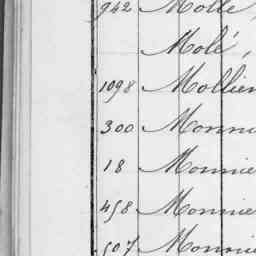 942 Molle,
Molé,
1098 Mollien
300 Monni
18 Monnie
458 Monnie
507 Monnie